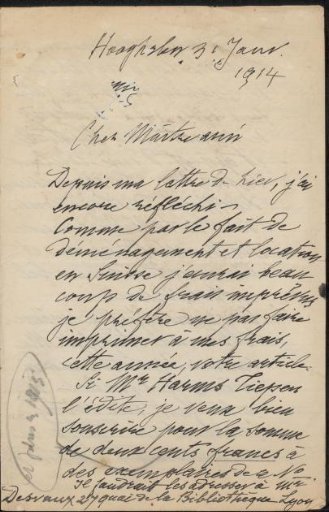 31 Janv.
1914
Cher Maître ami
Depuis ma lettre de hier, j'ai
encore réfléchi.
Comme par le fait de
déménagement et location
en Suisse j'aurai beau
coup de frais imprévus
je préfère ne pas faire
imprimer à mes frais,
cette année, votre article.
Si Mr Harms Tiepen
l'édite, je veux bien
souscrire pour la somme
de deux cents francs à
des exemplaires de
Il faudrait les adresser à Mr
Desvaux 27 quai de la Bibliothèque Lyon